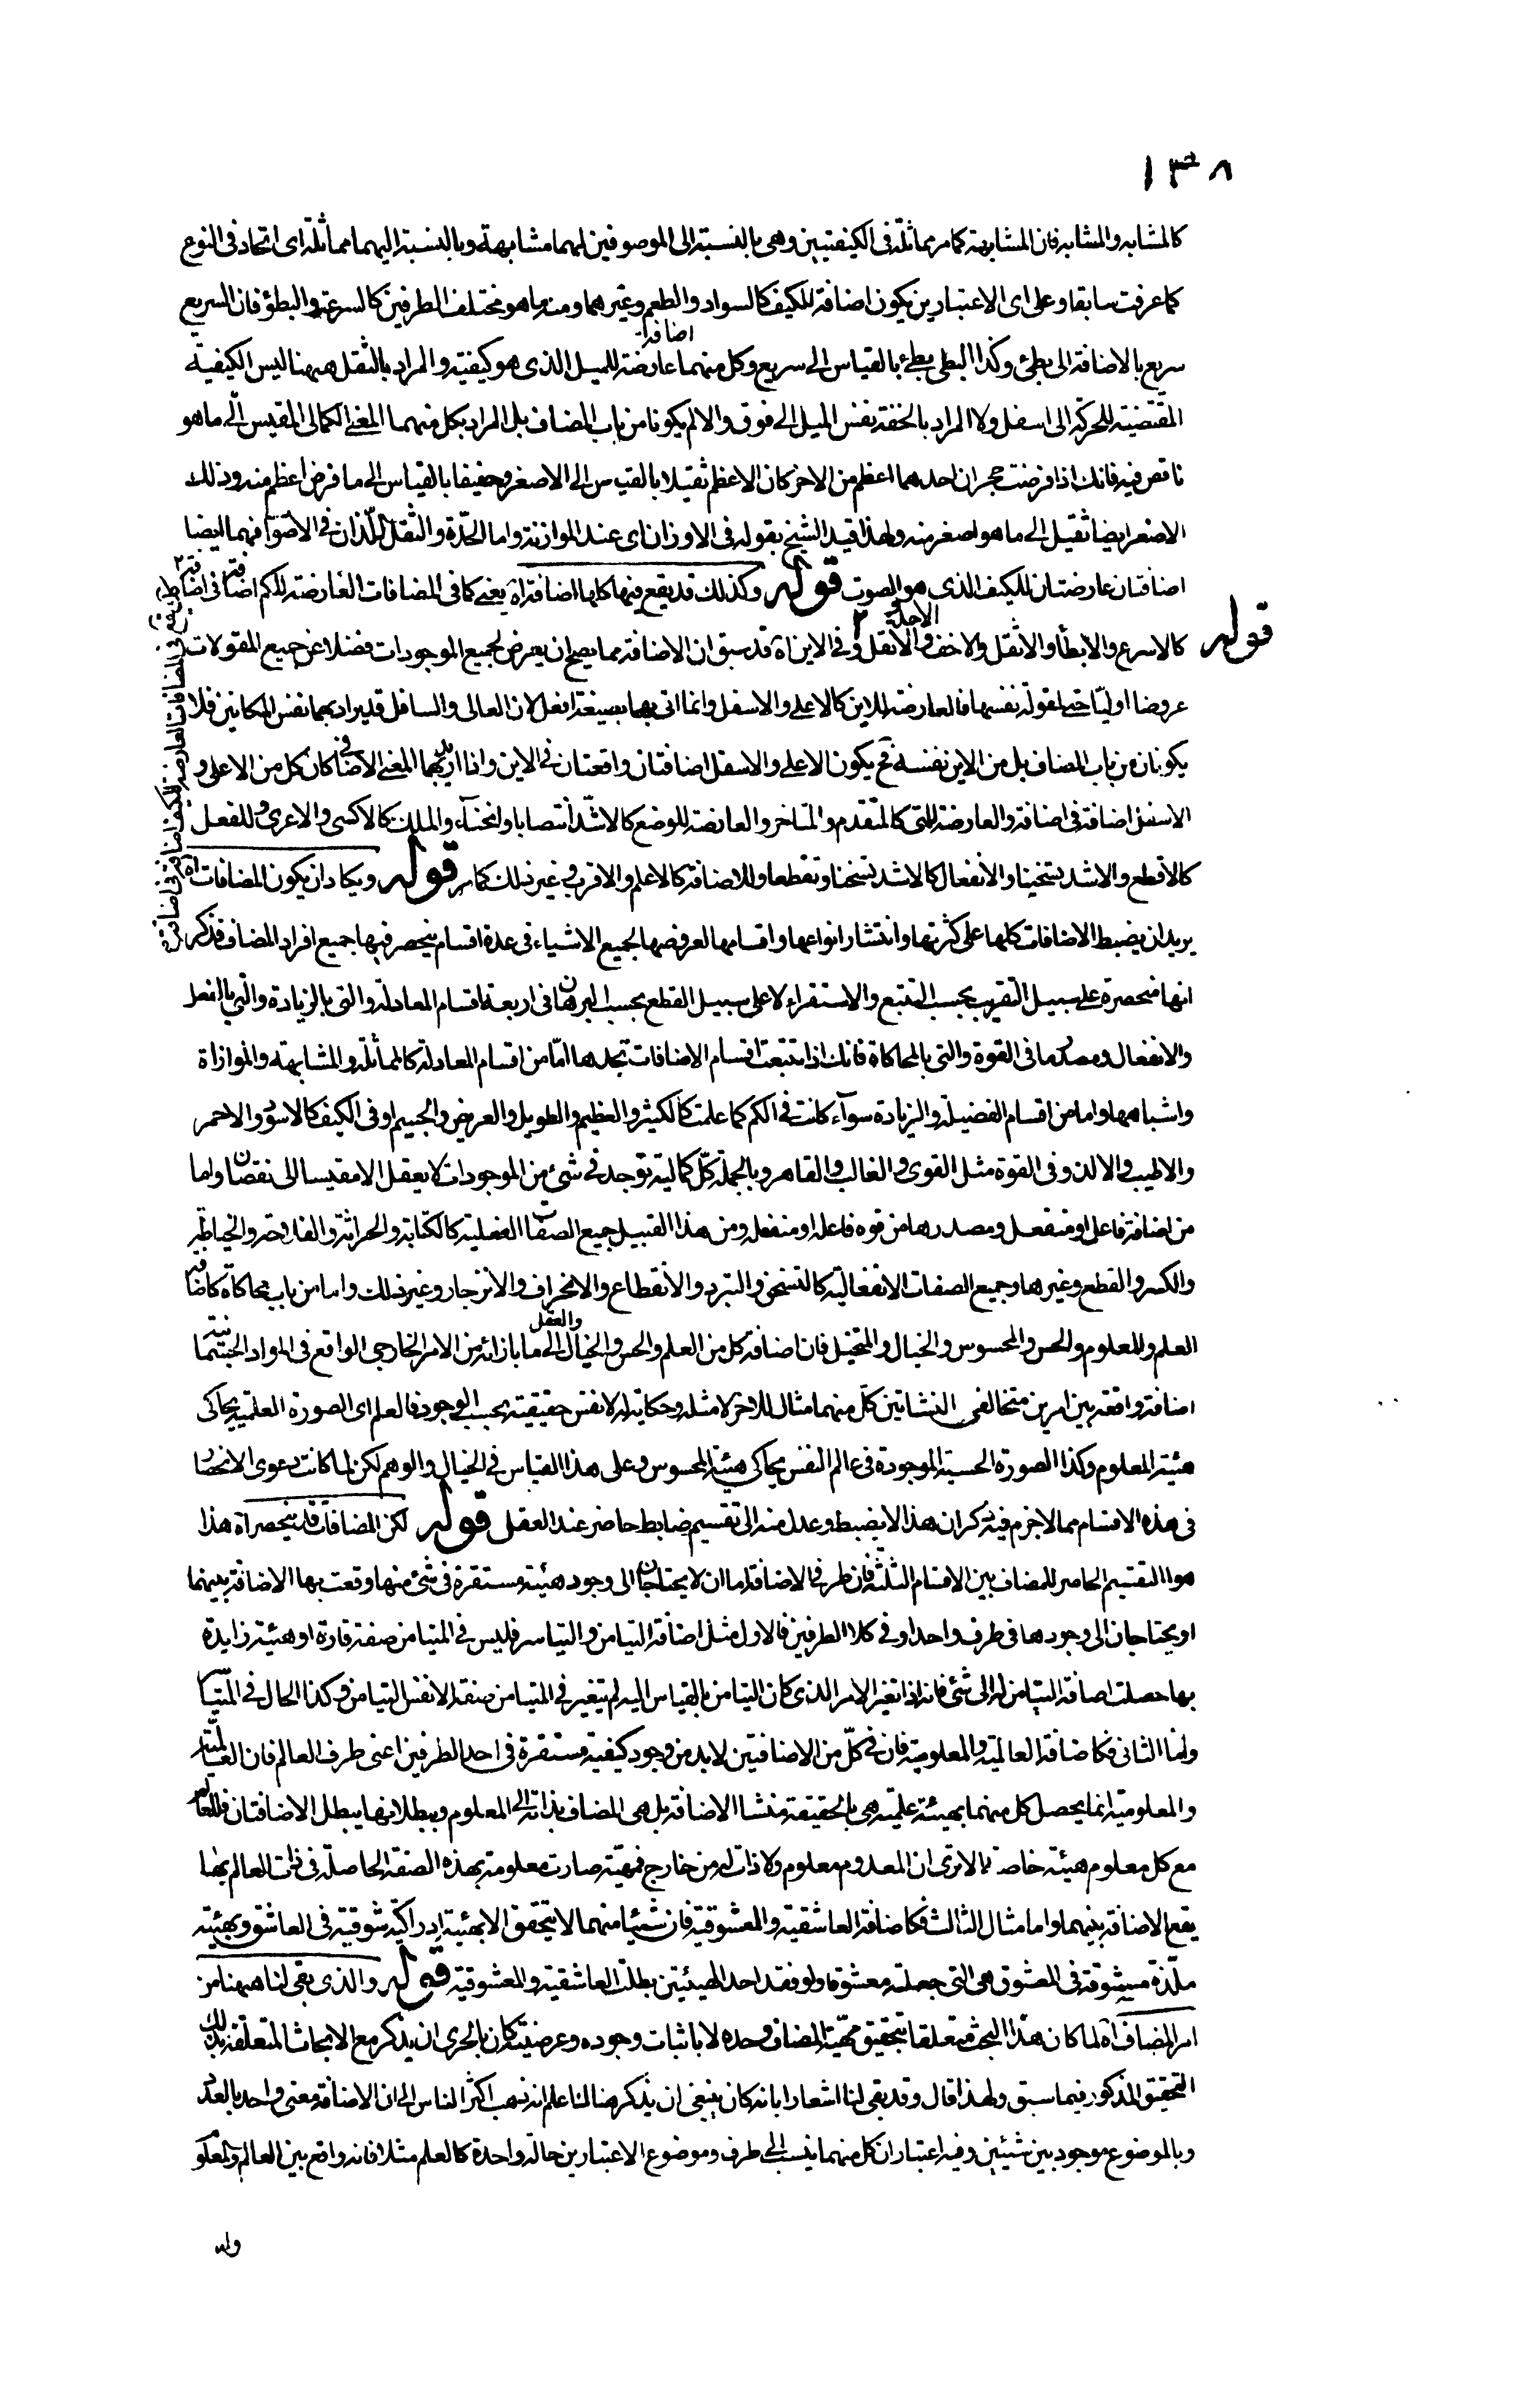 ١٣٨
كالمشابه والمشابه فان المشابهة كما مر مماثلة فى الكيفيتين وهى بالنسبة الى الموصوفين لهما مشابهة وبالنسبة اليهما مماثلة اى اتحاد فى النوع
كما عرفت سابقا وعلى اى الاعتبارين يكون اضافة للكيف كالسواد والطعم وغيرهما ومنه ما هو مختلف الطرفين كالسرعة والبطؤ فان السريع
اضافة
سريع بالاضافة الى بطئ وكذا البطى بطئ بالقياس الى سريع وكل منهما عارضة للميل الذى هو كيفية والمراد بالثقل ههنا ليس الكيفية
المقتضية للحركة الى اسفل ولا المراد بالخفة نفس الميل الى فوق والا لم يكونا من باب المضاف بل المراد بكل منهما المعنى الكمالى المقيس الى ما هو
ناقص فيه فانك اذا فرضت حجران احدهما اعظم من الاخر كان الاعظم ثقيلا بالقياس الى الاصغر وخفيفا بالقياس الى ما فرض اعظم منه وذلك
الاصغر ايضا ثقيل الى ما هو اصغر منه ولهذا قيد الشيخ بقوله فى الاوزان اى عند الموازنة واما الحدة والثقل اللذان فى الاصوات فهما ايضا
اضافتان عارضتان للكيف الذى هو الصوت قوله وكذلك قد يقع فيها كلها اضافة اه يعنى كما فى المضافات العارضة للكم اضافة فى اضافة
كذلك يقع فى المضافات العارضة للكيف اضافة فى اضافة
الاحد و
كالاسرع والابطأ والاثقل والاخف والاثقل قوله وفى الاين اه قد سبق ان الاضافة مما يصح ان يعرض لجميع الموجودات فضلا عن جميع المقولات
عروضا اوليا حتى لمقولة نفسها فالعارضة للاين كالاعلى والاسفل وانما اتى بهما بصيغة افعل لان العالى والسافل قد يراد بهما نفس المكانين فلا
يكونان من باب المضاف بل من الاين نفسه فح يكون الاعلى والاسفل اضافتان واقعتان فى الاين واذا اريد بهما المعنى الاضافى كان كل من الاعلى و
الاسفل اضافة فى اضافة والعارضة للمتى كالمتقدم والمتاخر والعارضة للوضع كالاشد انتصابا وانحناء والملك كالاكسى والاعرى وللفعل
كالاقطع والاشد تسخينا والانفعال كالاشد تسخنا وتقطعا وللاضافة كالاعلم والاقرب وغير ذلك كما مر قوله ويكاد ان يكون المضافات اه
يريد ان يضبط الاضافات كلها على كثرتها وانتشار انواعها واقسامها لعروضها لجميع الاشياء فى عدة اقسام ينحصر فيها جميع افراد المضاف فذكر
انها منحصرة على سبيل التقريب بحسب التتبع والاستقراء لا على سبيل القطع بحسب البرهان فى اربعة اقسام المعادلة والتى بالزيادة والتى بالفعل
والانفعال ومصدرهما فى القوة والتى بالمحاكاة فانك اذا تتبعت اقسام الاضافات تجدها اما من اقسام المعادلة كالمماثلة والمشابهة والموازاة
واشباهها واما من اقسام الفضيلة والزيادة سواء كانت فى الكم كما علمت كالكثير والعظيم والطويل والعريض والجسيم او فى الكيف كالاسود والاحمر
والاطيب والالذ وفى القوة مثل القوى والغالب والقاهر وبالجملة كل كمالية توجد فى شئ من الموجودات لا يعقل الا مقيسا الى نقصان واما
من اضافة فاعل او منفعل ومصدرها من قوه فاعله او منفعله ومن هذا القبيل جميع الصفات الفعلية كالكتابة والحراثة والفلاحة والخياطة
والكسر والقطع وغيرها وجميع الصفات الانفعالية كالتسخن والتبرد والانقطاع والانحراف والانزجار وغير ذلك واما من باب محاكاة كاضافة
والعقل
العلم والمعلوم والحس والمحسوس والخيال والمتخيل فان اضافة كل من العلم والحس والخيال الى ما بازائه من الامر الخارجى الواقع فى المواد الجسمانية
اضافة واقعة بين امرين متخالفى النشأتين كل منهما مثال للاخر لا مثله وحكاية له لا نفس حقيقته بحسب الوجود فالعلم اى الصورة العلمية يحاكى
هيئة المعلوم وكذا الصورة الحسية الموجودة فى عالم النفس يحاكى هيئة المحسوس وعلى هذا القياس فى الخيال والوهم لكن لما كانت دعوى الانحصار
فى هذه الاقسام مما لا جزم فيه ذكر ان هذا لا ينضبط وعدل منه الى تقسيم ضابط حاضر عند العقل قوله لكن المضافات قد ينحصر اه هذا
هو التقسيم الحاصر للمضاف بين الاقسام الثلثة فان طرفى الاضافة اما ان لا يحتاجان الى وجود هيئة مستقرة فى شئ منها وقعت بها الاضافة بينهما
او يحتاجان الى وجودها فى طرف واحد او فى كلا الطرفين فالاول مثل اضافة التيامن والتياسر فليس فى المتيامن صفة قارة او هيئة زايدة
بها حصلت اضافة التيامن له الى شئ فانه اذا تغير الامر الذى كان التيامن بالقياس اليه لم يتغير فى المتيامن صفة الا نفس التيامن وكذا الحال فى المتياسر
واما الثانى فكاضافة العالمية والمعلومية فان فى كل من الاضافتين لابد من وجود كيفية مستقرة فى احد الطرفين اعنى طرف العالم فان العالمية
والمعلومية انما يحصل كل منهما بهيئة علمية هى بالحقيقة منشا الاضافة بل هى المضاف بذاته الى المعلوم وببطلانها يبطل الاضافتان فللعالم
مع كل معلوم هيئة خاصة الا ترى ان المعدوم معلوم ولا ذات له من خارج فمهيته صارت معلومة بهذه الصفة الحاصلة فى ذات العالم بها
يقع الاضافة بينهما واما مثال الثالث فكاضافة العاشقية والمعشوقية فان شيئا منهما لا يتحقق الا بهيئة ادراكية شوقية فى العاشق وبهيئة
ملذة مشوقة فى المعشوق هى التى جعلته معشوقا ولو فقد احد الهيئتين بطلت العاشقية والمعشوقية قوله والذى بقى لنا ههنا من
امر المضاف اه لما كان هذا البحث متعلقا بتحقيق مهية المضاف وحده لا باثبات وجوده وعرضيته كان بالحرى ان يذكر مع الابحاث المتعلقة بذلك
التحقيق المذكور فيما سبق ولهذا قال وقد بقى لنا اشعارا بانه كان ينبغى ان يذكر هنالك اعلم انه ذهب اكثر الناس الى ان الاضافة معنى واحد بالعدد
وبالموضوع موجود بين شيئين وفيه اعتباران كل منهما ينسب الى طرف وموضوع الاعتبارين حالة واحدة كالعلم مثلا فانه واقع بين العالم والمعلوم